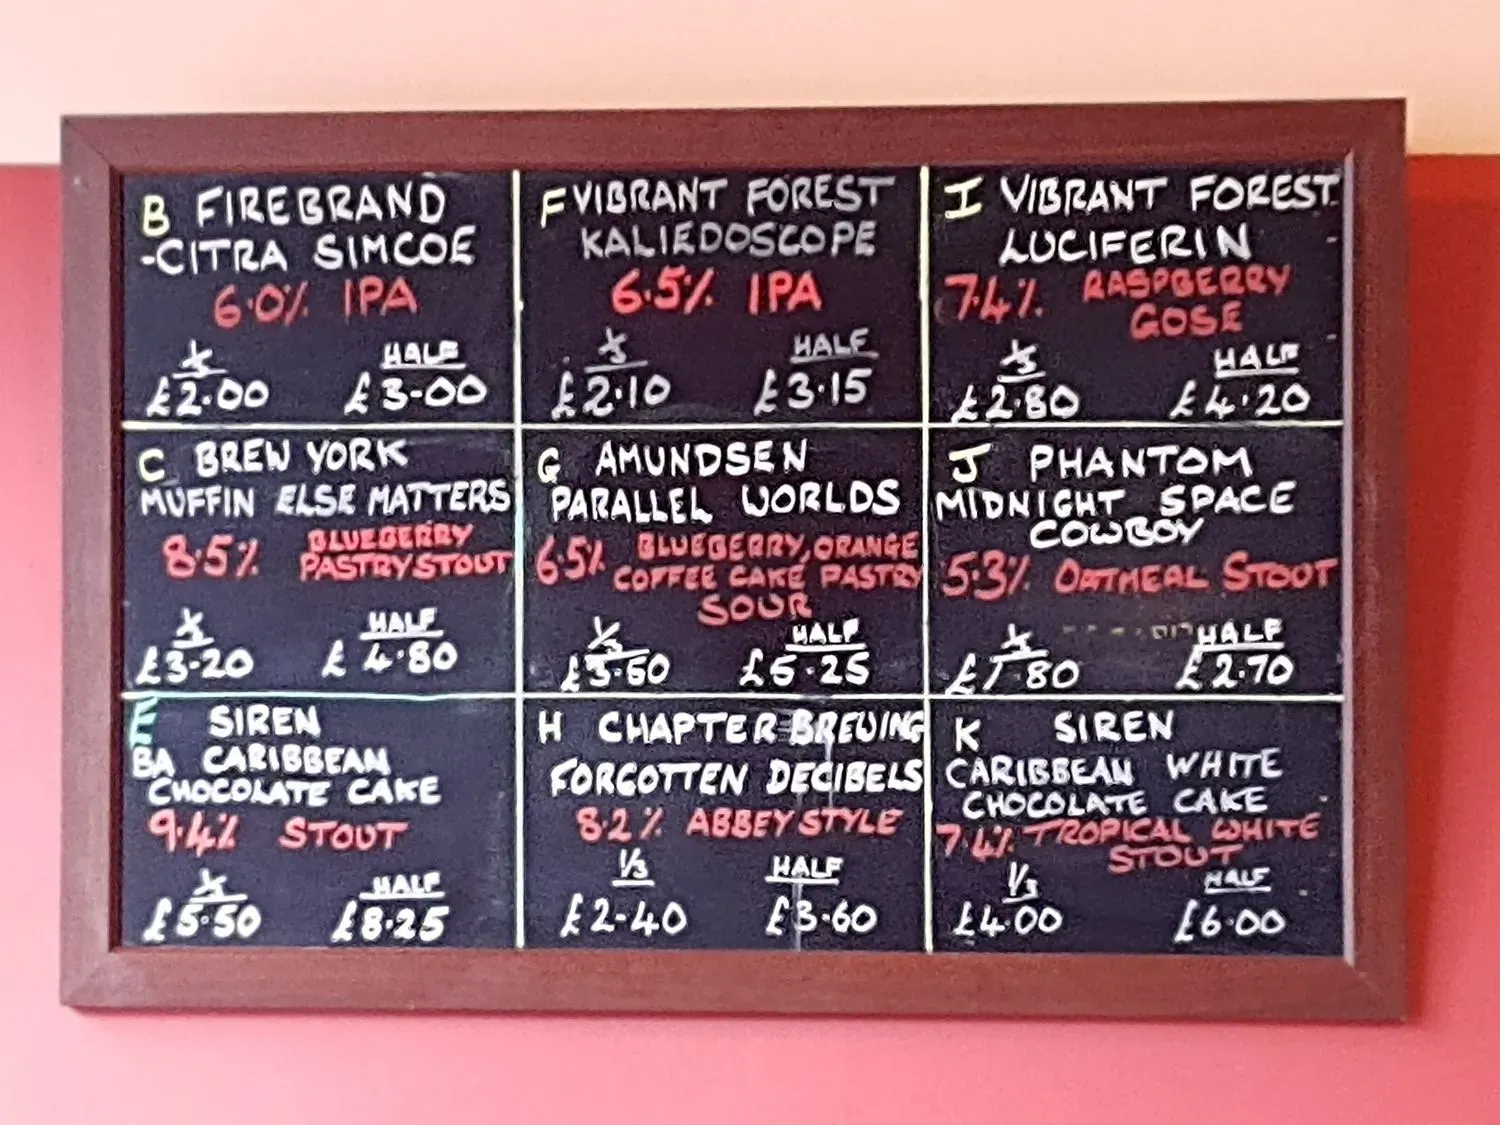 B FIREBRAND
-CITRA SIMCOE
6.0% IPA
⅓ HALF
£2.00 £3-00
F VIBRANT FOREST
KALIEDOSCOPE
6.5% IPA
⅓ HALF
£2.10 £3.15
I VIBRANT FOREST
LUCIFERIN
7.4% RASPBERRY
GOSE
⅓ HALF
£2.80 £4.20
C BREW YORK
MUFFIN ELSE MATTERS
8.5% BLUEBERRY
PASTRY STOUT
⅓ HALF
£3-20 £4.80
G AMUNDSEN
PARALLEL WORLDS
6.5% BLUEBERRY, ORANGE
COFFEE CAKE PASTRY
SOUR
⅓ HALF
£3.50 £5.25
J PHANTOM
MIDNIGHT SPACE
COWBOY
5.3% OATMEAL STOUT
⅓ HALF
£1.80 £2.70
E SIREN
BA CARIBBEAN
CHOCOLATE CAKE
9.4% STOUT
⅓ HALF
£5.50 £8.25
H CHAPTER BREWING
FORGOTTEN DECIBELS
8.2% ABBEY STYLE
1/3 HALF
£2-40 £3.60
K SIREN
CARIBBEAN WHITE
CHOCOLATE CAKE
7.4% TROPICAL WHITE
STOUT
1/3 HALF
£4.00 £6.00